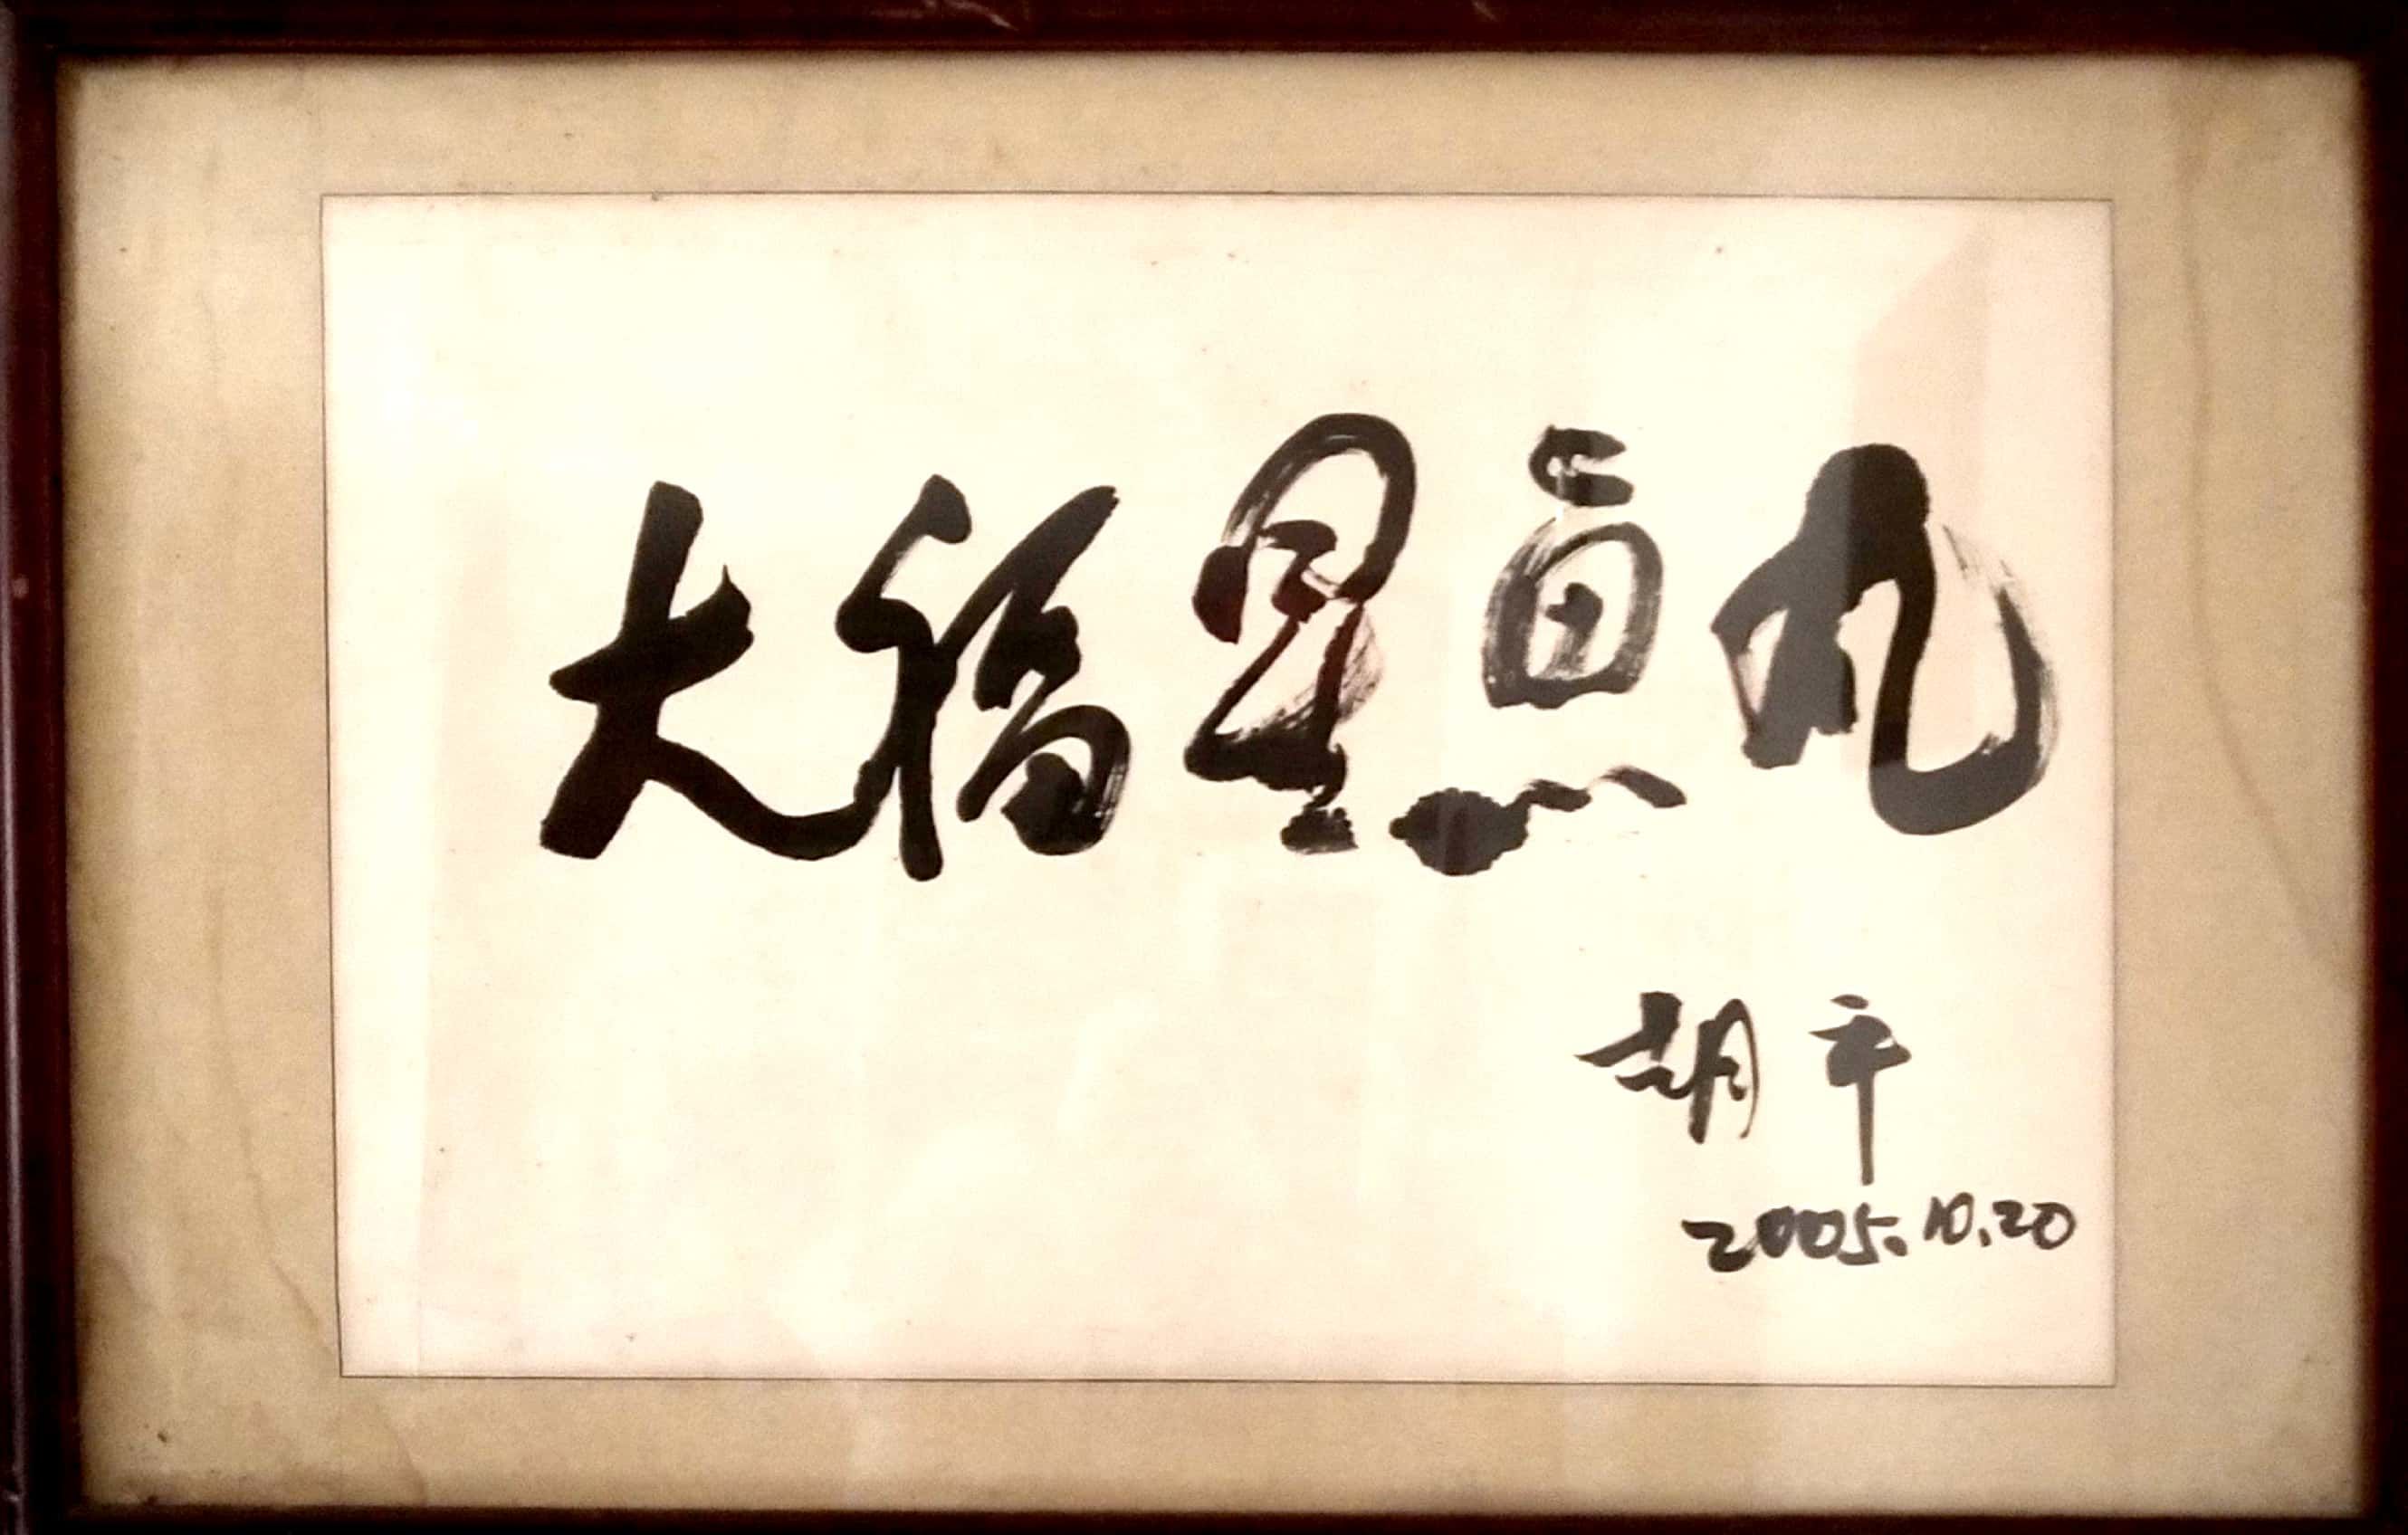 大福星魚丸
胡平
2005.10.20